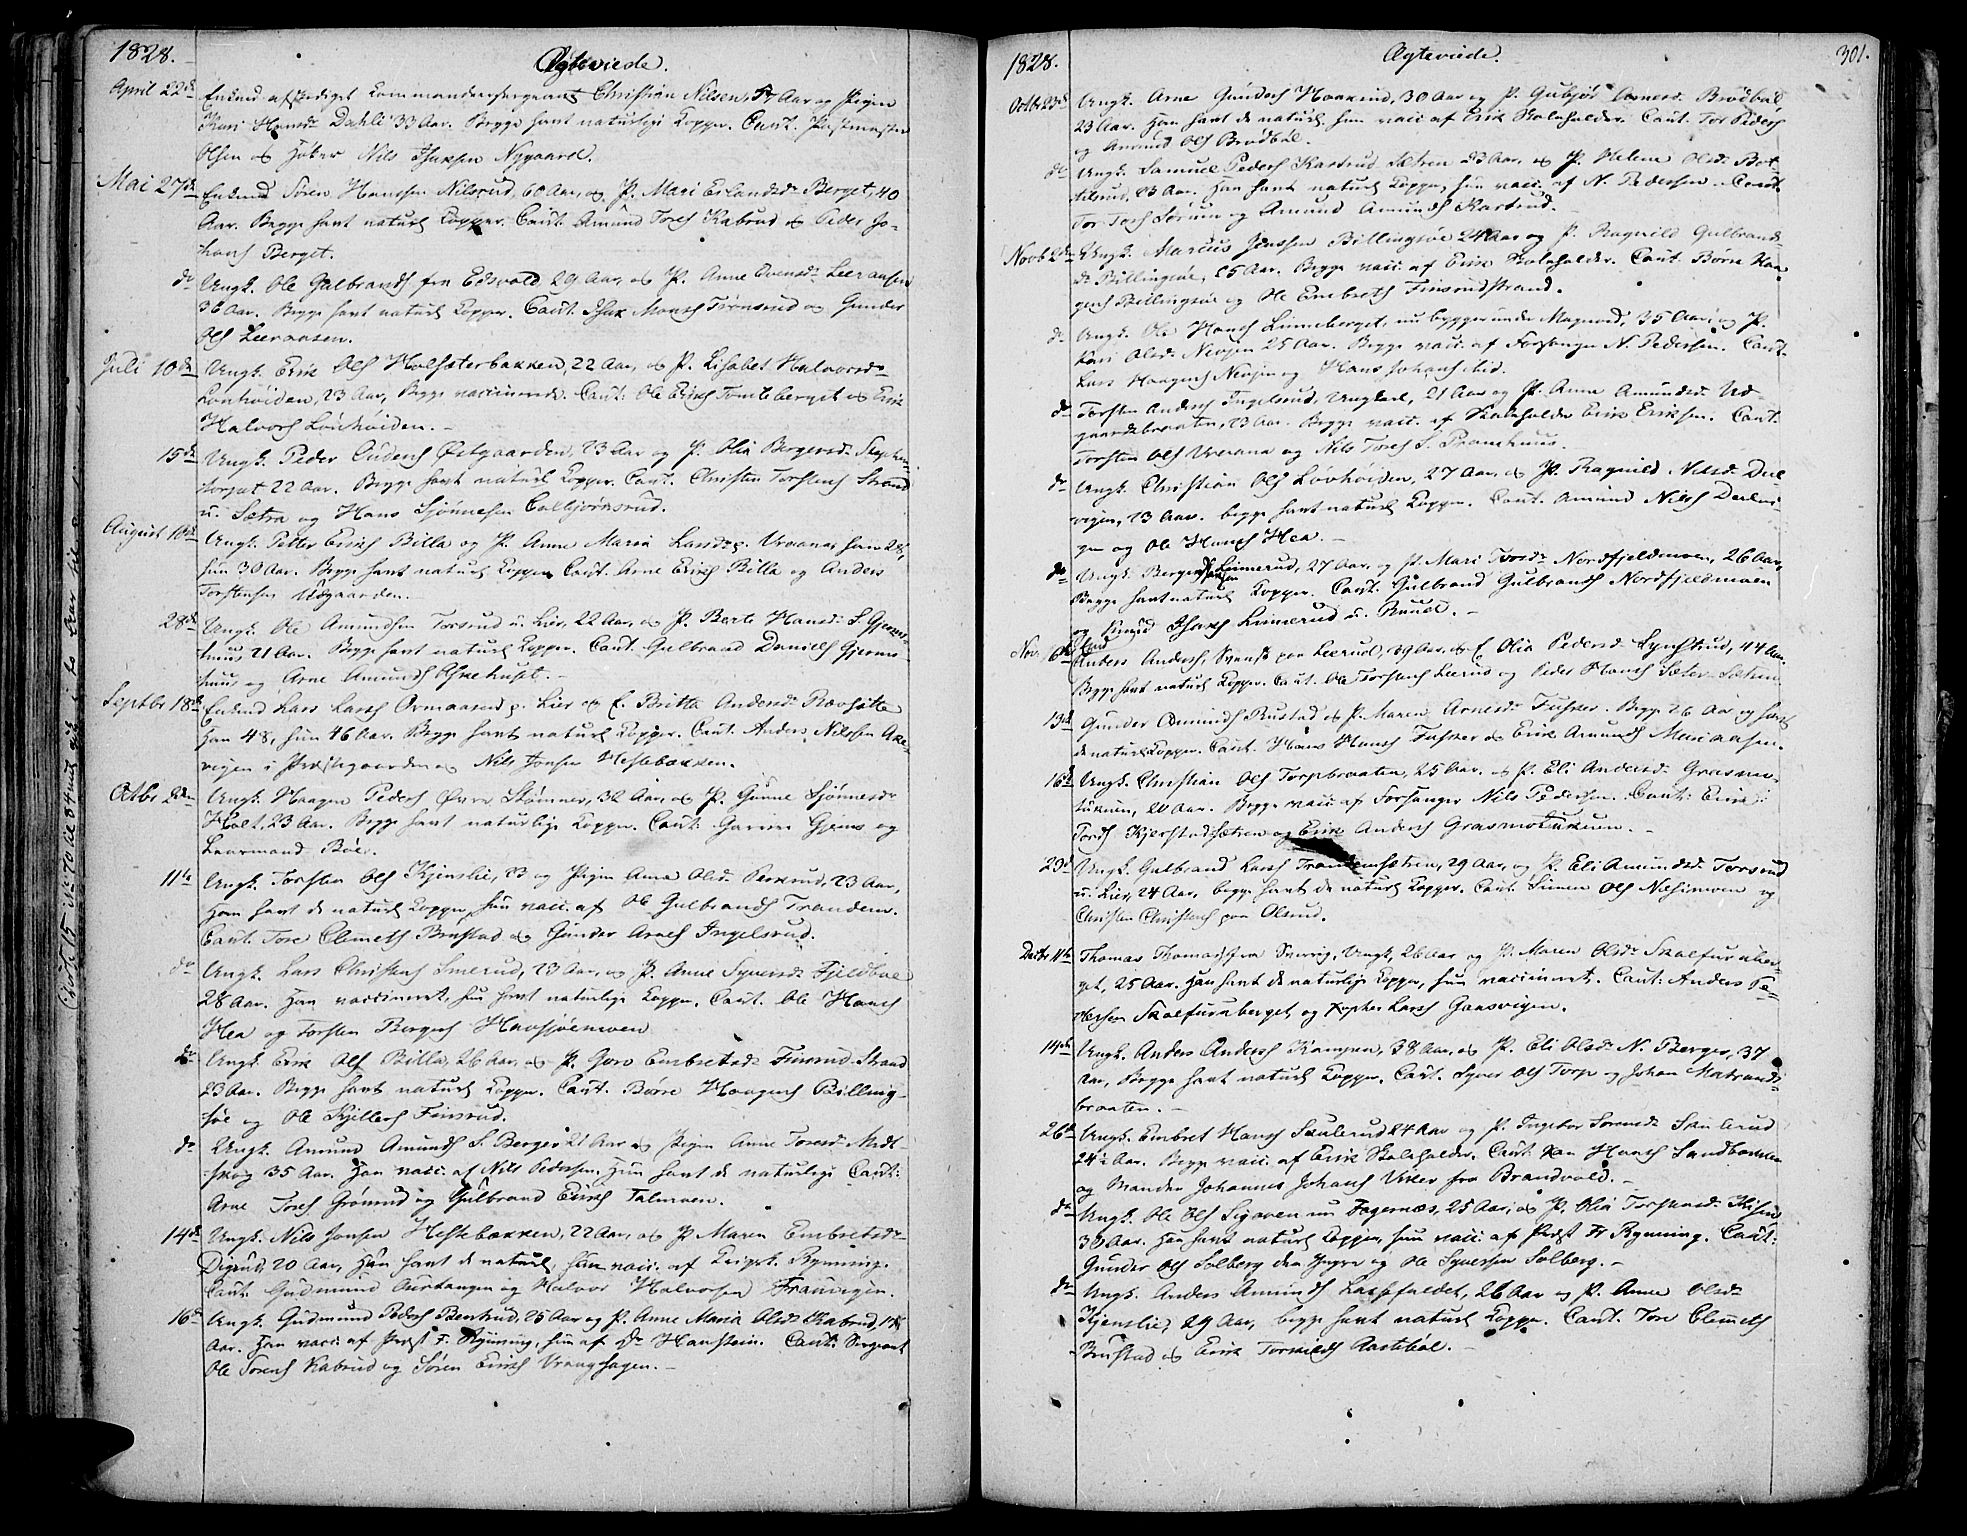 1828.
Ægteviede.
April 22de Enkmd afskediget Commandeersergeant Christian Nilsen, 57 Aar og Pigen
Kari Hansdr Dahli 33 Aar. Begge havt naturlige Kopper. Caut.
Olsen og Nils Isaksen Nygaard.
Mai 27de Enkmd Søren Hanssen Nilsrud, 60 Aar, og P. Mari Erlandsdr Berget, 40
Aar. Begge havt naturl Kopper. Caut. Amund Tores Kabrud og Peder Jo-
hans Berget.
do Ungk. Ole Gulbrands fra Edsvold 29 Aar, og P. Anne Evensdr Leeraasen
36 Aar. Begge havt naturl Kopper. Caut. Isak Mons og Gunder
Ols Leeraasen.
Juli 10de Ungk. Erik Ols Holsæterbakken, 22 Aar, og P. Lisabet Halvorsdr
Lønhøiden, 23 Aar, Begge vaccinerede. Caut: Ole Eriks Tomteberget og Erik
Halvors Lønhøiden. –
15de Ungk. Peder Gudens Østgaarden, 23 Aar og P. Olia Bergersdr
torpet 22 Aar. Begge havt naturl Kopper. Caut. Christen Torstens Strand
u. Sætra og Hans Sjønnesen Colbjørnsrud.
August 10de Ungk. Petter Eriks Billa og P. Anne Maria Larsdr Vraanes han 28,
hun 30 Aar. Begge havt naturl Kopper Caut. Arne Eriks Billa og Anders
Torstensen Udgaarden.
28de Ungk. Ole Amundsen Torsrud u. Lier, 22 Aar, og P. Berte Hansdr S. Gjems-
huus 21 Aar. Begge havt naturl Kopper. Caut. Gulbrand Daniels Gjems-
huus og Arne Amunds
Septbr 18de Enkmd Lars Lars Ormaasen p. Lier og E. Britta Andersdr Rævhøtta
han 48, hun 46 Aar. Begge havt naturl Kopper. Caut. Anders Nilssen Aae-
vigen i Præstegaarden og Nils Jonsen Hestebækken.
Octbr 2den Ungk. Haagen Peders Øvre Stømner, 32 Aar, og P. Gunne Sjønnesdr
Holt, 23 Aar. Begge havt naturlige Kopper. Caut. Gjems og
Leermand Böe.
11te Ungk. Torsten Ols Kjenslie, 23 og Pigen Anne Olsdr 23 Aar,
Han havt de naturl Kopper, hun vacc. af Ole Gulbrands Trandem.
Caut. Tore Clemets Brustad og Gunder Arnes Ingelsrud.
do Ungk. Lars Christens Smerud, 23 Aar, og P. Anne Syversdr Fjeldbøe
28 Aar. Han vaccineret, hun havt naturlige Kopper, Caut. Ole Hans
Hea og Torsten Bergers Havsjøemoen
do Ungk. Erik Ols Billa, 26 Aar, og P. Goro Embretsdr Finsrud Strand
23 Aar. Begge havt naturl Kopper. Caut. Børre Haagens Billing-
søe og Ole Kjillers Finsrud.
do Ungk. Amund Amunds S. Berger 21 Aar og Pigen Anne Toresdr Midt-
skog 35 Aar. Han vacc. af Nils Pedersen, hun havt de naturlige Caut:
Arne Tores Grønrud og Gulbrand Eriks Talmoen.
14de Ungk. Nils Jonsen Hestebækken, 22 Aar, og P Maren Embretsdr
Digerud, 20 Aar, han havt de naturl, hun vacc. af Rynning.
Caut. Gudmund og Halvor Halvorsen
16de Ungk. Gudmund Peders Benterud, 25 Aar og P. Anne Maria Olsdr Kabrud,
Aar. Han vacc. af Præst F. Rynning, hun af Dr Hanstein. Caut: Sergeant
Ole Torers Kabrud og Søren Eriks Vraaghagen. –
1828.
Ægteviede.
301.
Octbr 23de Ungk. Arne Gunders Haakrud, 30 Aar og P. Gubjør Arnesdr Brødbøl,
23 Aar. Han havt de naturl, hun vacc. af Erik Skoleholder. Caut. Tor Peders
og Amund Ols Brødbøl.
do Ungk. Samuel Peders Kastrud Sætren 23 Aar, og P. Helene Olsdr Bot-
tilsrud, 23 Aar. Han havt naturl Kopper, hun vacc. af N. Pedersen. Caut
Tor Tors Sørum og Amund Amunds Kastrud.
Novb 2den Ungk. Marcus Jenssen Billingsøe 24 Aar og P. Ragnild Gulbrands-
dr Billingsøe, 25 Aar. Begge vacc. af Erik Skoleholder. Caut. Børre Haa-
gens Billingsøe og Ole Embrets Finsrudstrand.
do Ungk. Ole Hans Linneberget, nu bygger under Magnord, 35 Aar, og P.
Kari Olsdr Nevjen 25 Aar. Begge vacc. af Forsanger N. Pedersen. Caut.
Lars Haagens Nevjen og Hans Johans
do Torsten Anders Ingelsrud, Ungkarl, 21 Aar og P. Anne Amundsdr Ud-
gaardsbraaten, 23 Aar. Begge vacc. af Skoleholder Erik Eriksen. Caut.
Torsten Ols Vraana og Nils Tores S.
do Ungk. Christian Ols Løvhøiden, 27 Aar, og P. Ragnild Nilsdr Dul-
vigen, 23 Aar. begge havt naturl Kopper. Caut. Amund Nils Dulvi-
gen og Ole Hans Hea. –
do Ungk. Berger Isaksen Linnerud, 27 Aar, og P. Mari Toresdr Nordfjeldmoen, 26 Aar,
Begge havt naturl Kopper. Caut. Gulbrand Gulbrands Nordfjeldmoen
og Knud Isaks Linnerud u. Ruud. –
Nov: Anders Anders, Svensk paa Leerud, 39 Aar, og E. Olia Pedersdr Lynstrud, 44 Aar.
Begge havt naturl Kopper. Caut. Ole Torstens Leerud og Peder Hans Sæter Sætren
13de Gunder Amunds Rustad og P. Maren Arnesdr Fusker. Begge 26 Aar og havt
de naturl Kopper. Caut. Hans Hans Fusker og Erik Amunds Mariaasen.
16de Ungk. Christian Ols Torpbraaten, 25 Aar. og P. Eli Andersdr Grasmo-
tukun, 20 Aar. Begge vacc. af Forsanger Nils Pedersen. Caut: Erik
Tords Kjerstadsætren og Erik Anders Grasmotukun. –
23de Ungk. Gulbrand Lars Trandemsætren, 29 Aar, og P. Eli Amundsdr Torsrud
u. Lier, 24 Aar, begge havt de naturl Kopper. Caut. Simen Ols Nesimoen og
Christen Christens paa Olsrud.
Decbr 11te Thomas Thomas fra Sverrig, Ungk, 26 Aar og P. Maren Olsdr Skalfuruber-
get, 25 Aar. Han havt de naturlige Kopper, hun vaccineret. Caut: Anders Pe-
dersen Skalfuruberget og Kopher Lars Gaasvigen.
14de Ungk. Anders Anders Kampen, 38 Aar, og P. Eli Olsdr N. Berger, 37
Aar, Begge havt naturl Kopper. Caut. Syver Ols Torp og Johan Matrands-
braaten. –
26de Ungk. Embret Hans Skulerud 24 Aar og P. Ingebor Toresdr Skulerud
24 Aar. Begge vacc. af Erik Skoleholder. Caut Hans Sandbækken
og Manden Johannes Johans Viker fra Brandvold. –
do Ungk. Ole Ols Sigaren nu Fagernæs, 25 Aar, og P. Olia Torstensdr
30 Aar. Han havt naturl Kopper, hun vacc. af Præst Fr Rynning. Caut:
Gunder Ols Solberg den Yngre og Ole Syversen Solberg. –
do Ungk. Anders Amunds Lassefaldet, 26 Aar og P. Anne Olsdr
Kjenslie, 29 Aar, begge havt naturl Kopper. Caut. Tore Clemets
Brustad og Erik Torkilds Rastebøl. –